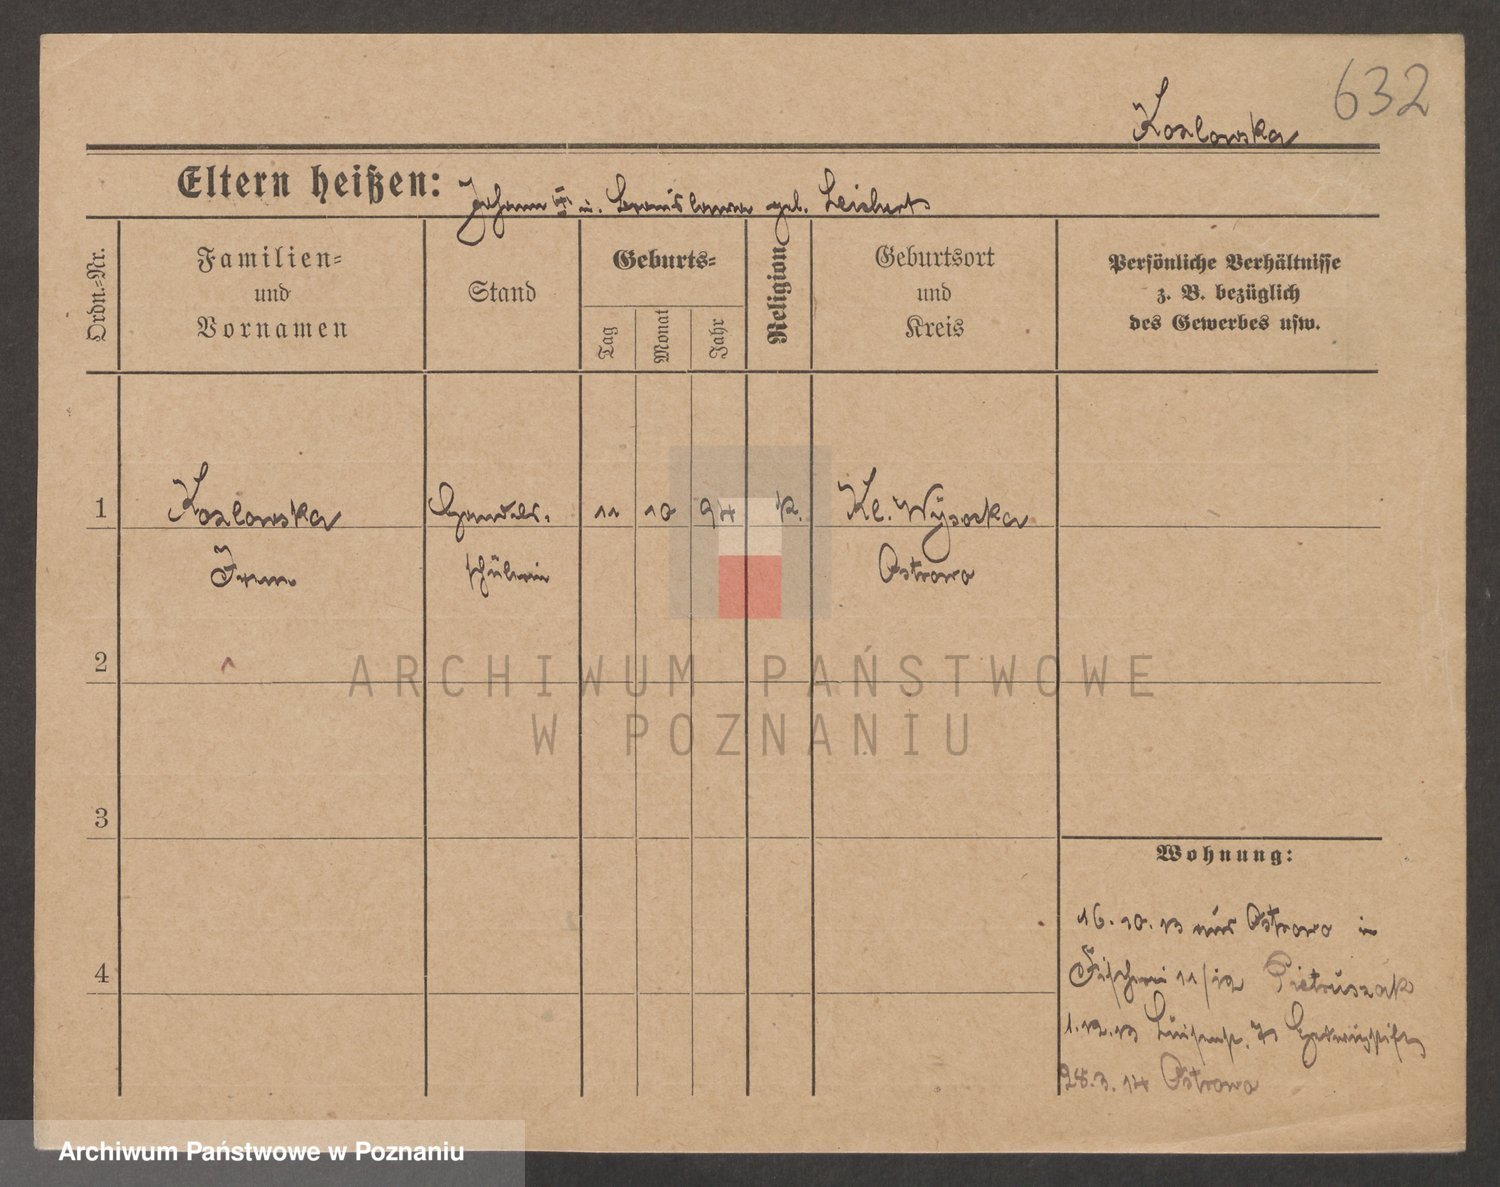 632
Kozlowska
Eltern heißen: Johann u. Bronislawa geb. Leichert
Ordn.-Nr.
Familien- und Vornamen
Stand
Geburts-
Tag
Monat
Jahr
Religion
Geburtsort und Kreis
Persönliche Verhältnisse
z. B. bezüglich
des Gewerbes usw.
1 Kozlowska Handels- 11 10 94 k. Kl. Wysocka
Irene schülerin Ostrowo
2
3
4
Wohnung:
16.10.13 aus Ostrowo in
Fischerei 11/12 Pietruszak
1.12.13 Luisenstr.
28.3.14 Ostrowo
ARCHIWUM PAŃSTWOWE
W POZNANIU
Archiwum Państwowe w Poznaniu